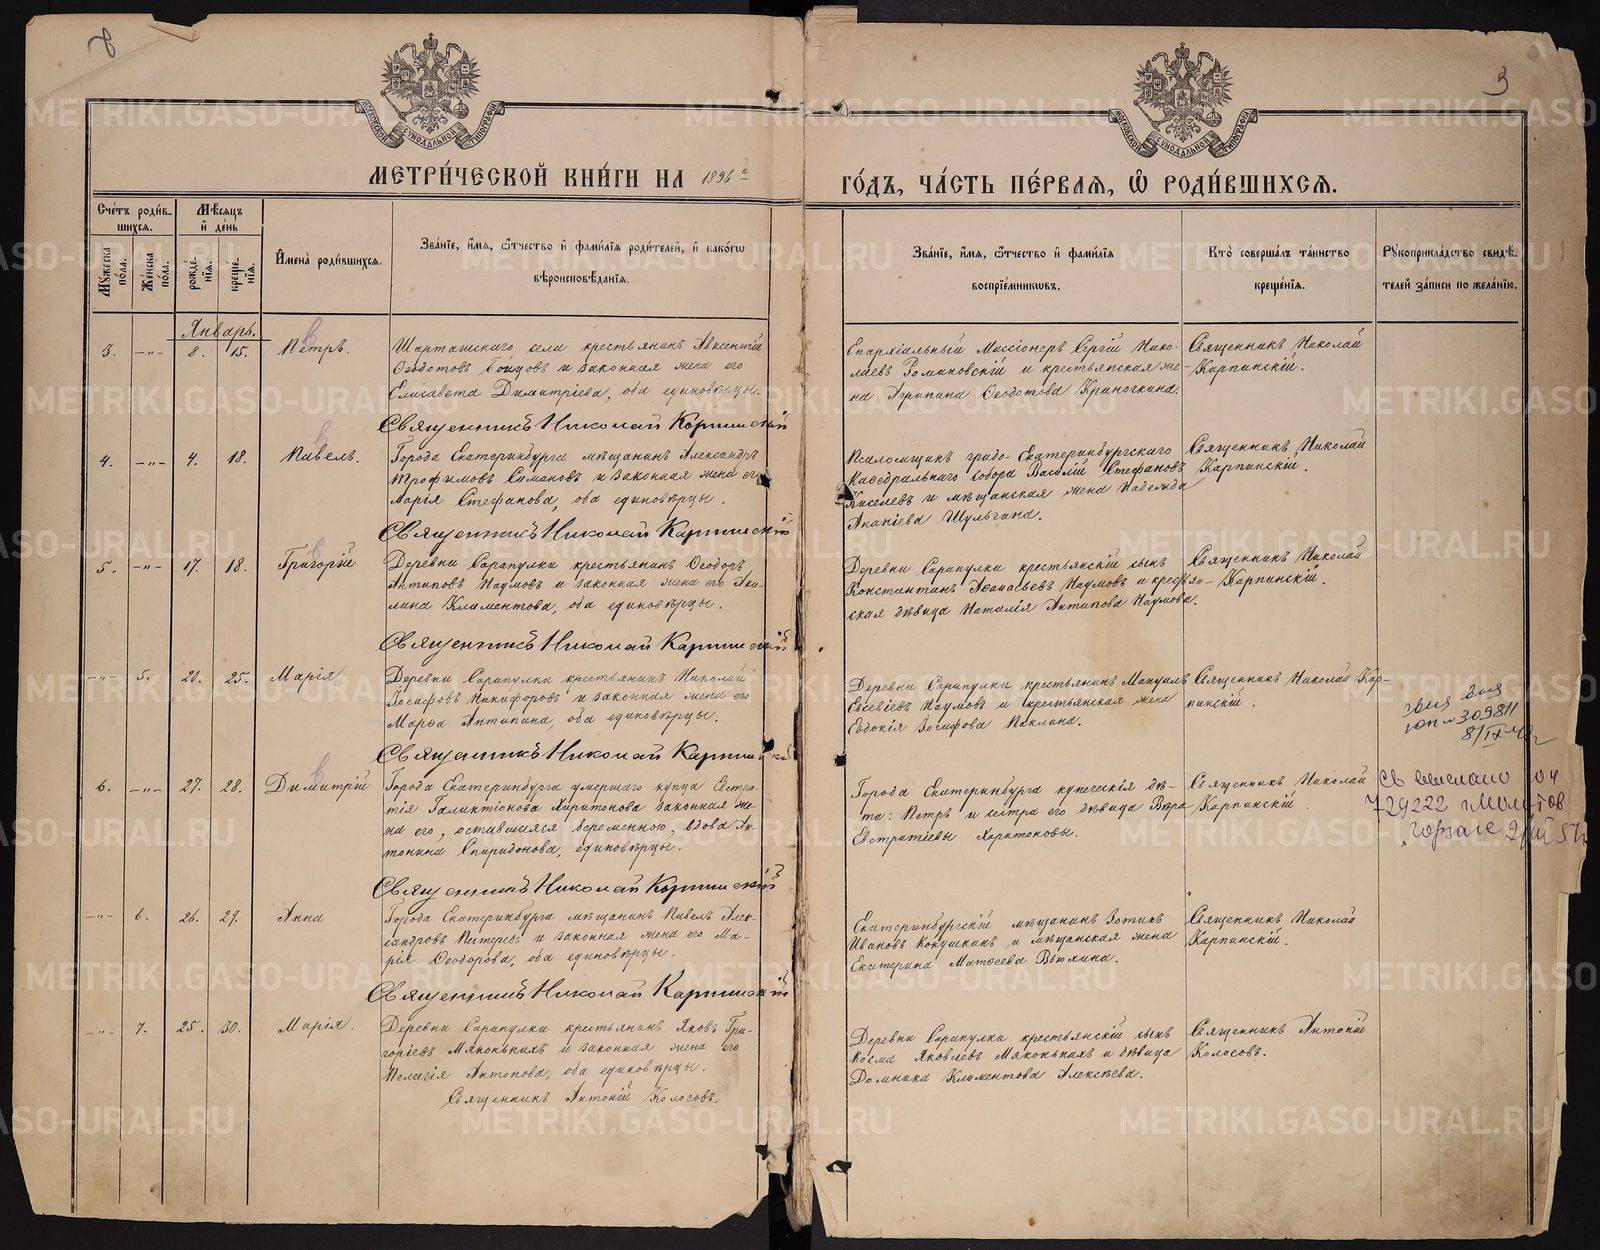 8
3
МОСКОВСКОЙ СѴНОДАЛЬНОЙ ТИПОГРАФІИ
МОСКОВСКОЙ СѴНОДАЛЬНОЙ ТИПОГРАФІИ
МЕТРИ́ЧЕСКОЙ КНИ́ГИ НА 1896 й
ГО́ДЪ, ЧА́СТЬ ПЕ́РВАЯ, Ѡ РОДИ́ВШИХСЯ.
Сче́тъ роди́в-
шихся.
Мꙋжеска по́ла.
Же́нска по́ла.
Мѣ́сяцъ
и҆ де́нь
рожде́-
нія.
креще́-
нія.
И҆мена̀ роди́вшихся.
Зва́ніе, и҆́мя, ѻ҆́тчество и҆ фами́лія роди́телей, и҆ како́гѡ
вѣроисповѣ́данія.
Зва́ніе, и҆́мя, ѻ҆́тчество и҆ фами́лія
воспрїе́мникѡвъ.
Кто̀ соверша́лъ та́инство
креще́нія.
Рꙋкоприкла́дство свидѣ́-
телей за́писи по жела́нію.
Январь.
3. —"— 8. 15. Петръ.
Шарташскаго села крестьянинъ Авксентій
Ѳеодотовъ Бойцовъ и законная жена его
Елисавета Димитріева, оба единовѣрцы.
Священникъ Николай Карпинскій
Епархіальный Миссіонеръ Сергій Нико-
лаевъ Романовскій и крестьянская же-
на Агрипина Ѳеодотова Криночкина.
Священникъ Николай
Карпинскій.
4. —"— 4. 18. Павелъ.
Города Екатеринбурга мѣщанинъ Александръ
Трофимовъ Симановъ и законная жена его
Марія Стефанова, оба единовѣрцы.
Священникъ Николай Карпинскій
Псаломщикъ градо-Екатеринбургскаго
Кафедральнаго собора Василій Стефановъ
Киселевъ и мѣщанская жена Надежда
Ананіева Шульгина.
Священникъ Николай
Карпинскій.
5. —"— 17. 18. Григорій
Деревни Сарапулки крестьянинъ Ѳеодоръ
Антиповъ Наумовъ и законная жена его Аку-
лина Климентова, оба единовѣрцы.
Священникъ Николай Карпинскій
Деревни Сарапулки крестьянскій сынъ
Константинъ Аѳанасьевъ Наумовъ и крестьян-
ская дѣвица Наталія Антипова Наумова.
Священникъ Николай
Карпинскій.
—"— 5. 20. 25. Марія
Деревни Сарапулки крестьянинъ Николай
Іосифовъ Никифоровъ и законная жена его
Марѳа Антипина, оба единовѣрцы.
Священникъ Николай Карпинскій
Деревни Сарапулки крестьянинъ Мануилъ
Евсевіевъ Наумовъ и крестьянская жена
Евдокія Іосифова Пеклина.
Священникъ Николай Кар-
пинскій.
309811
6. —"— 27. 28. Димитрій
Города Екатеринбурга умершаго купца Евстра-
тія Галактіонова Харитонова законная же-
на его, оставшаяся беременною, вдова Ан-
тонина Спиридонова, единовѣрцы.
Священникъ Николай Карпинскій
Города Екатеринбурга купеческія дѣ-
та: Петръ и сестра его дѣвица Вѣра
Евстратіевы Харитоновы.
Священникъ Николай
Карпинскій.
729222 г Молотов
—"— 6. 26. 29. Анна
Города Екатеринбурга мѣщанинъ Павелъ Алек-
сандровъ Питеревъ и законная жена его Ма-
рія Ѳеодорова, оба единовѣрцы.
Священникъ Николай Карпинскій
Екатеринбургскій мѣщанинъ Зотикъ
Ивановъ Кокушкинъ и мѣщанская жена
Екатерина Матѳеева Вьюхина.
Священникъ Николай
Карпинскій.
—"— 7. 25. 30. Марія.
Деревни Сарапулки крестьянинъ Яковъ Гри-
горіевъ Мяконькихъ и законная жена его
Пелагія Антонова, оба единовѣрцы.
Священникъ Антоній Колосовъ.
Деревни Сарапулки крестьянскій сынъ
Косма Яковлевъ Мяконькихъ и дѣвица
Домника Климентова Алексѣева.
Священникъ Антоній
Колосовъ.
METRIKI.GASO-URAL.RU